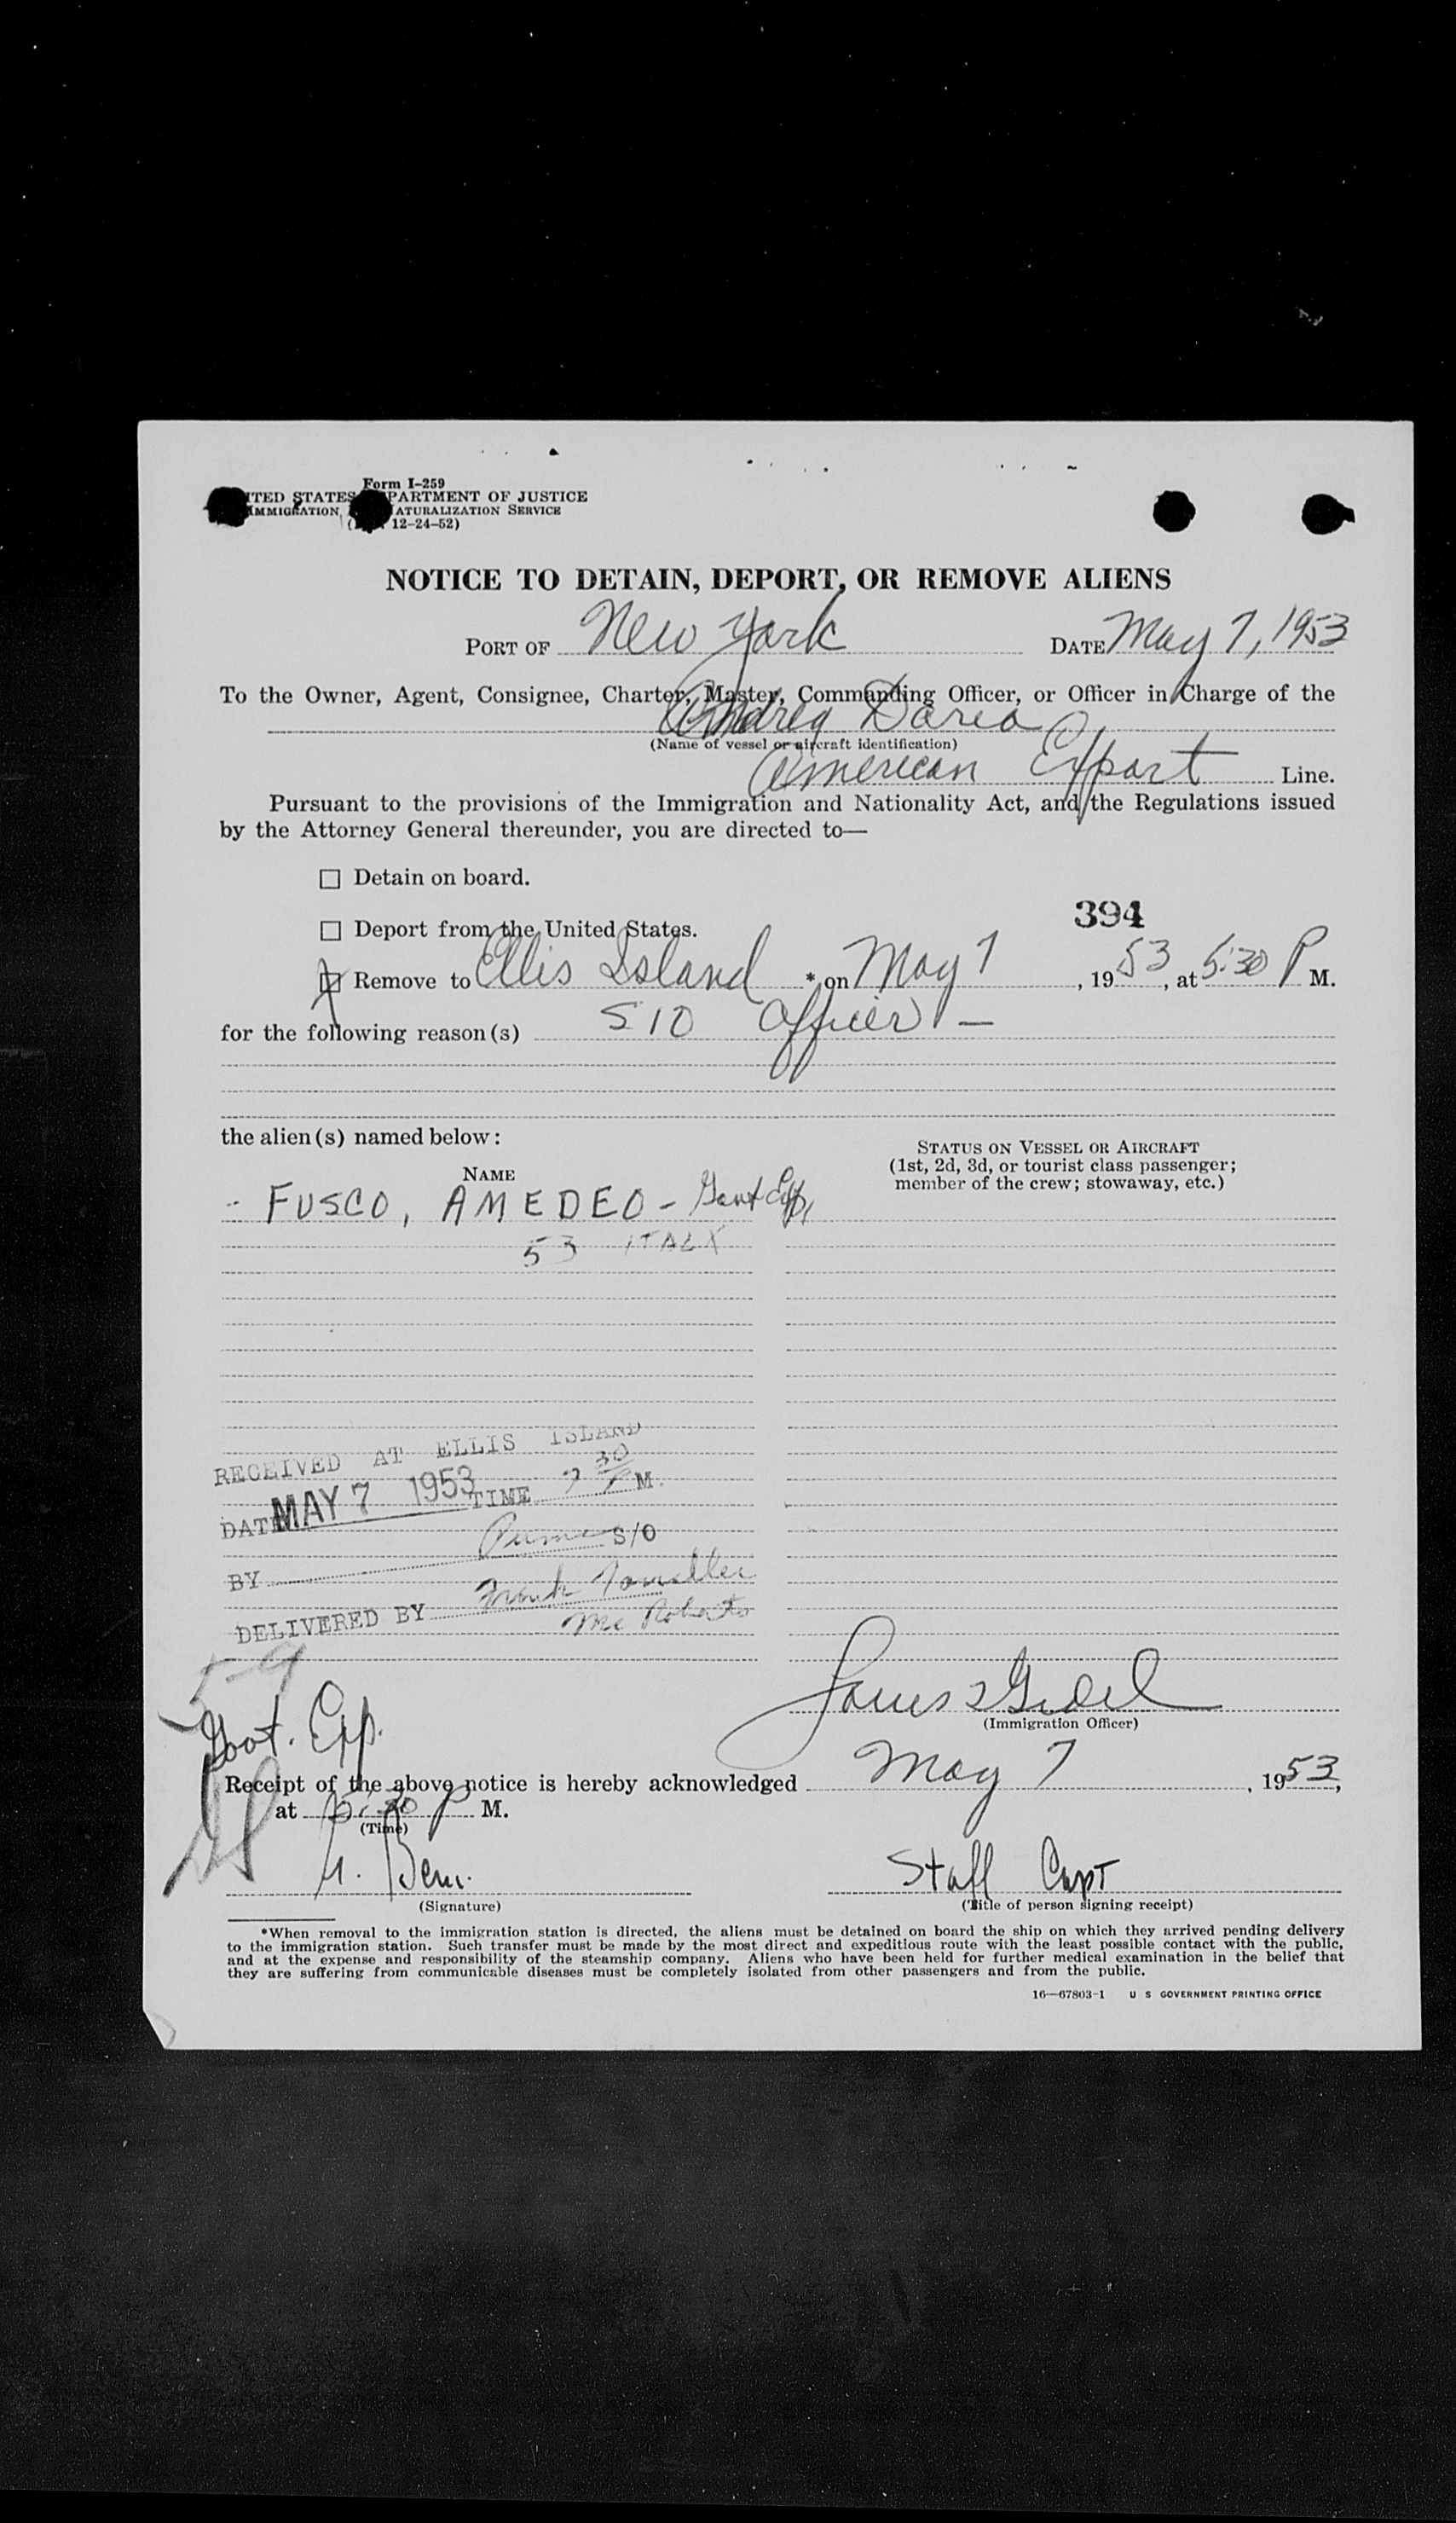 Form I-259
ITED STATES PARTMENT OF JUSTICE
IMMIGRATION ATURALIZATION SERVICE
12-24-52)
NOTICE TO DETAIN, DEPORT, OR REMOVE ALIENS
PORT OF New York DATE May 7, 1953
To the Owner, Agent, Consignee, Charter, Master, Commanding Officer, or Officer in Charge of the
Andrea Doria
(Name of vessel or aircraft identification)
American Export Line.
Pursuant to the provisions of the Immigration and Nationality Act, and the Regulations issued
by the Attorney General thereunder, you are directed to—
☐ Detain on board.
394
☐ Deport from the United States.
☒ Remove to Ellis Island * on May 7, 1953, at 5:30 P M.
for the following reason(s) SIO Officer –
the alien(s) named below:
NAME
STATUS ON VESSEL OR AIRCRAFT
(1st, 2d, 3d, or tourist class passenger;
member of the crew; stowaway, etc.)
- FUSCO, AMEDEO - Govt Exp.
53 ITALY
RECEIVED AT ELLIS ISLAND
DATE MAY 7 1953 TIME 7 30 P M.
BY S/O
DELIVERED BY Frank
Mc Roberts
5-9
Govt. Exp.
(Immigration Officer)
Receipt of the above notice is hereby acknowledged May 7, 1953,
at 5:30 P M.
(Time)
Staff Capt
(Signature)
(Title of person signing receipt)
*When removal to the immigration station is directed, the aliens must be detained on board the ship on which they arrived pending delivery
to the immigration station. Such transfer must be made by the most direct and expeditious route with the least possible contact with the public,
and at the expense and responsibility of the steamship company. Aliens who have been held for further medical examination in the belief that
they are suffering from communicable diseases must be completely isolated from other passengers and from the public.
16—67803-1 U S GOVERNMENT PRINTING OFFICE